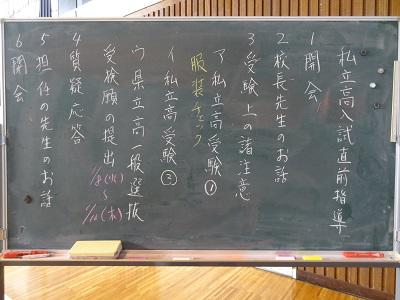 私立高入試直前指導
1 開会
2 校長先生のお話
3 受験上の諸注意
ア 私立高受験①
服装チェック
イ 私立高受験②
ウ 県立高一般選抜
受検願の提出
4 質疑応答
5 担任の先生のお話
6 閉会